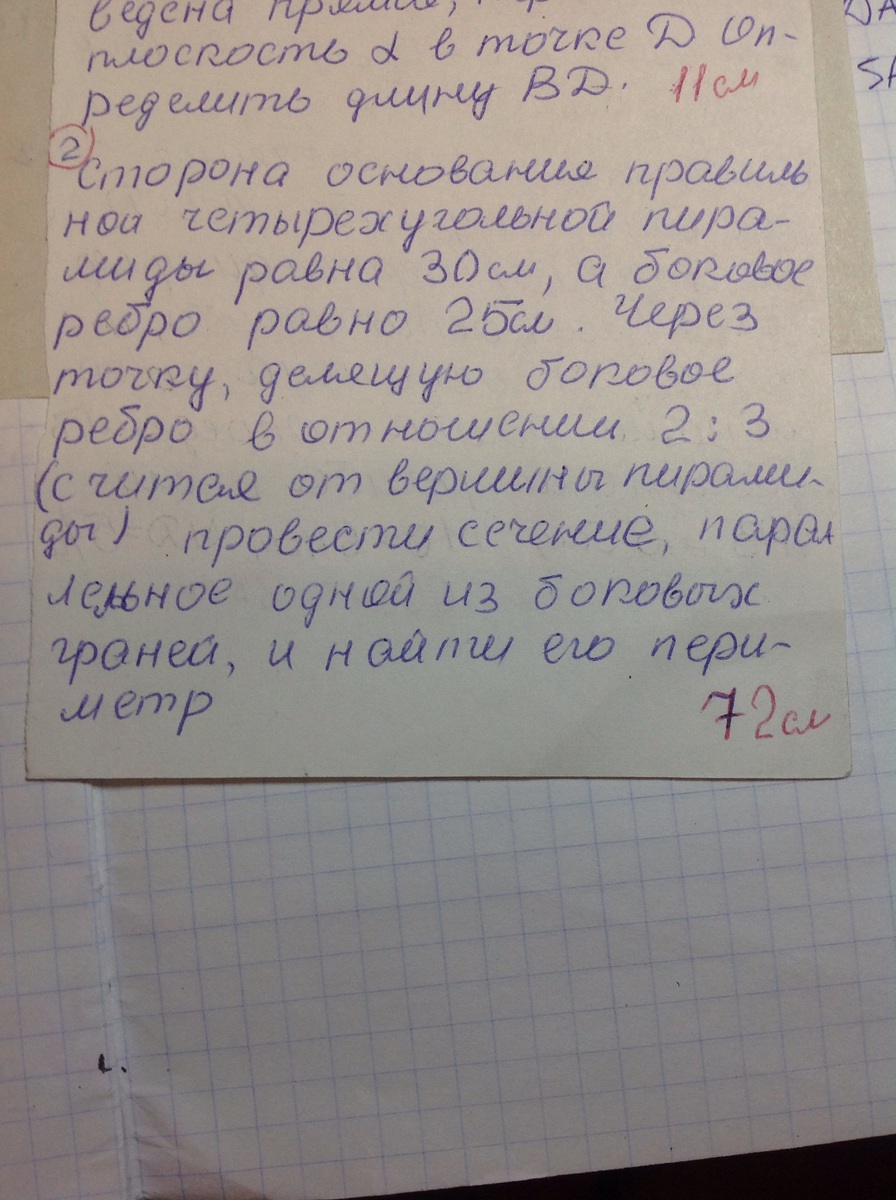 ведена прямая,
плоскость α в точке D Оп-
ределить длину BD. 11см
2
Сторона основания правиль
ной четырехугольной пира-
миды равна 30см, а боковое
ребро равно 25см. Через
точку, делящую боковое
ребро в отношении 2:3
(считая от вершины пирами-
ды) провести сечение, парал
лельное одной из боковых
граней, и найти его пери-
метр 72см
DA
SA